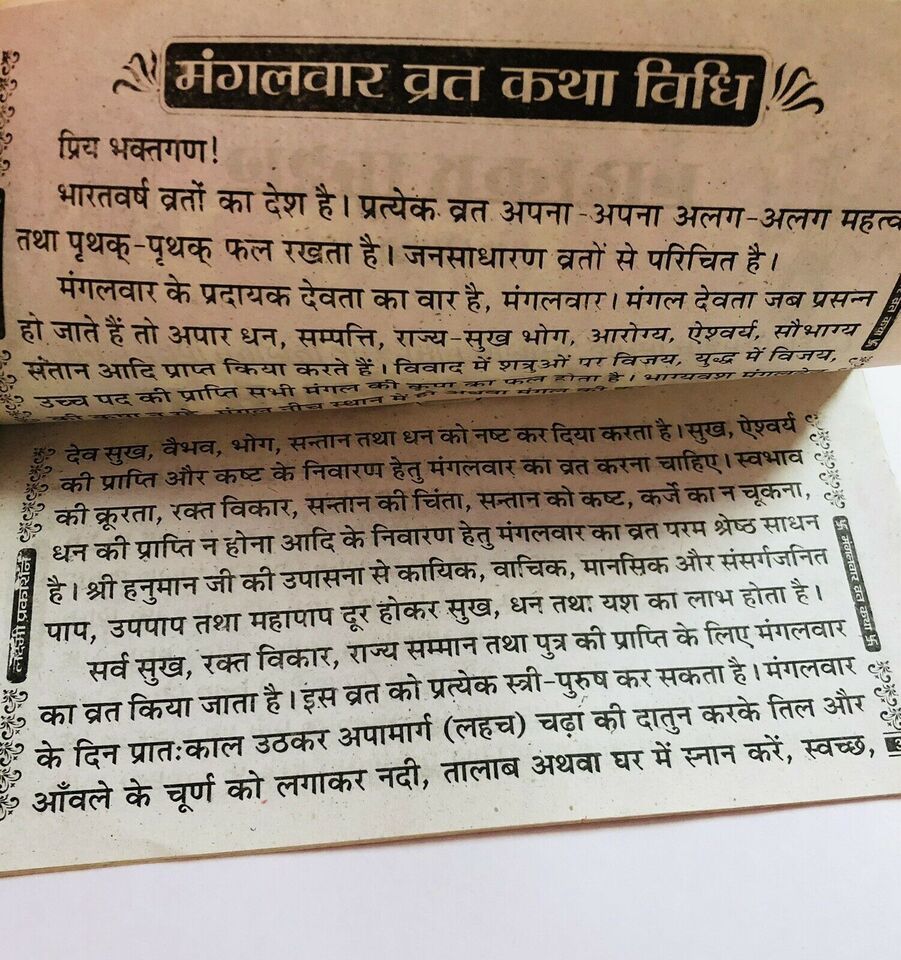 मंगलवार व्रत कथा विधि
प्रिय भक्तगण!
भारतवर्ष व्रतों का देश है। प्रत्येक व्रत अपना-अपना अलग-अलग महत्व
तथा पृथक्-पृथक् फल रखता है। जनसाधारण व्रतों से परिचित है।
मंगलवार के प्रदायक देवता का वार है, मंगलवार। मंगल देवता जब प्रसन्न
हो जाते हैं तो अपार धन, सम्पत्ति, राज्य-सुख भोग, आरोग्य, ऐश्वर्य, सौभाग्य
संतान आदि प्राप्त किया करते हैं। विवाद में शत्रुओं पर विजय, युद्ध में विजय,
उच्च पद की प्राप्ति सभी मंगल की कृपा का फल होता है। भाग्यवश मंगलदेव
देव सुख, वैभव, भोग, सन्तान तथा धन को नष्ट कर दिया करता है। सुख, ऐश्वर्य
की प्राप्ति और कष्ट के निवारण हेतु मंगलवार का व्रत करना चाहिए। स्वभाव
की क्रूरता, रक्त विकार, सन्तान की चिंता, सन्तान को कष्ट, कर्जे का न चूकना,
धन की प्राप्ति न होना आदि के निवारण हेतु मंगलवार का व्रत परम श्रेष्ठ साधन
है। श्री हनुमान जी की उपासना से कायिक, वाचिक, मानसिक और संसर्गजनित
पाप, उपपाप तथा महापाप दूर होकर सुख, धन तथा यश का लाभ होता है।
सर्व सुख, रक्त विकार, राज्य सम्मान तथा पुत्र की प्राप्ति के लिए मंगलवार
का व्रत किया जाता है। इस व्रत को प्रत्येक स्त्री-पुरुष कर सकता है। मंगलवार
के दिन प्रातःकाल उठकर अपामार्ग (लहच) चढ़ा की दातुन करके तिल और
आँवले के चूर्ण को लगाकर नदी, तालाब अथवा घर में स्नान करें, स्वच्छ,
लक्ष्मी प्रकाशन
卐 मंगलवार व्रत कथा 卐